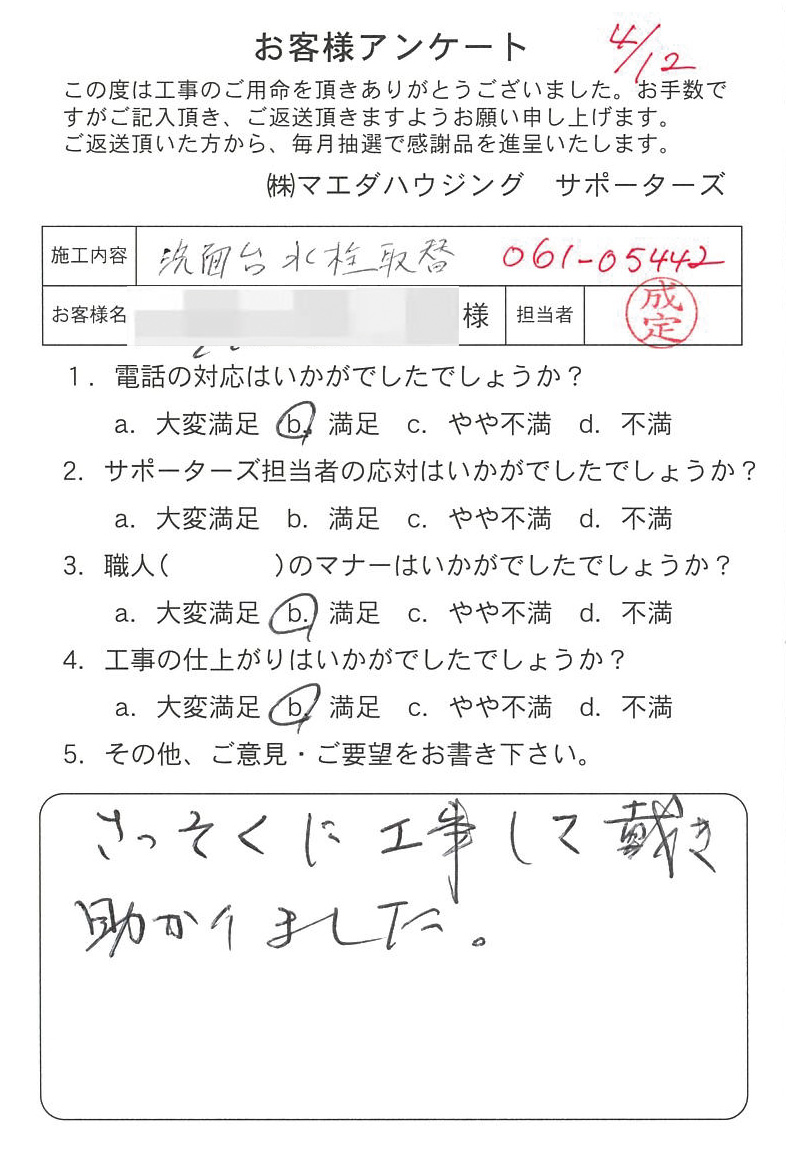 お客様アンケート
4/12
この度は工事のご用命を頂きありがとうございました。お手数で
すがご記入頂き、ご返送頂きますようお願い申し上げます。
ご返送頂いた方から、毎月抽選で感謝品を進呈いたします。
㈱マエダハウジング　サポーターズ
施工内容 洗面台水栓取替 061-05442
お客様名 様 担当者 成定
1. 電話の対応はいかがでしたでしょうか？
a. 大変満足 b. 満足 c. やや不満 d. 不満
2. サポーターズ担当者の応対はいかがでしたでしょうか？
a. 大変満足 b. 満足 c. やや不満 d. 不満
3. 職人(　　　　)のマナーはいかがでしたでしょうか？
a. 大変満足 b. 満足 c. やや不満 d. 不満
4. 工事の仕上がりはいかがでしたでしょうか？
a. 大変満足 b. 満足 c. やや不満 d. 不満
5. その他、ご意見・ご要望をお書き下さい。
さっそくに工事して戴き
助かりました。